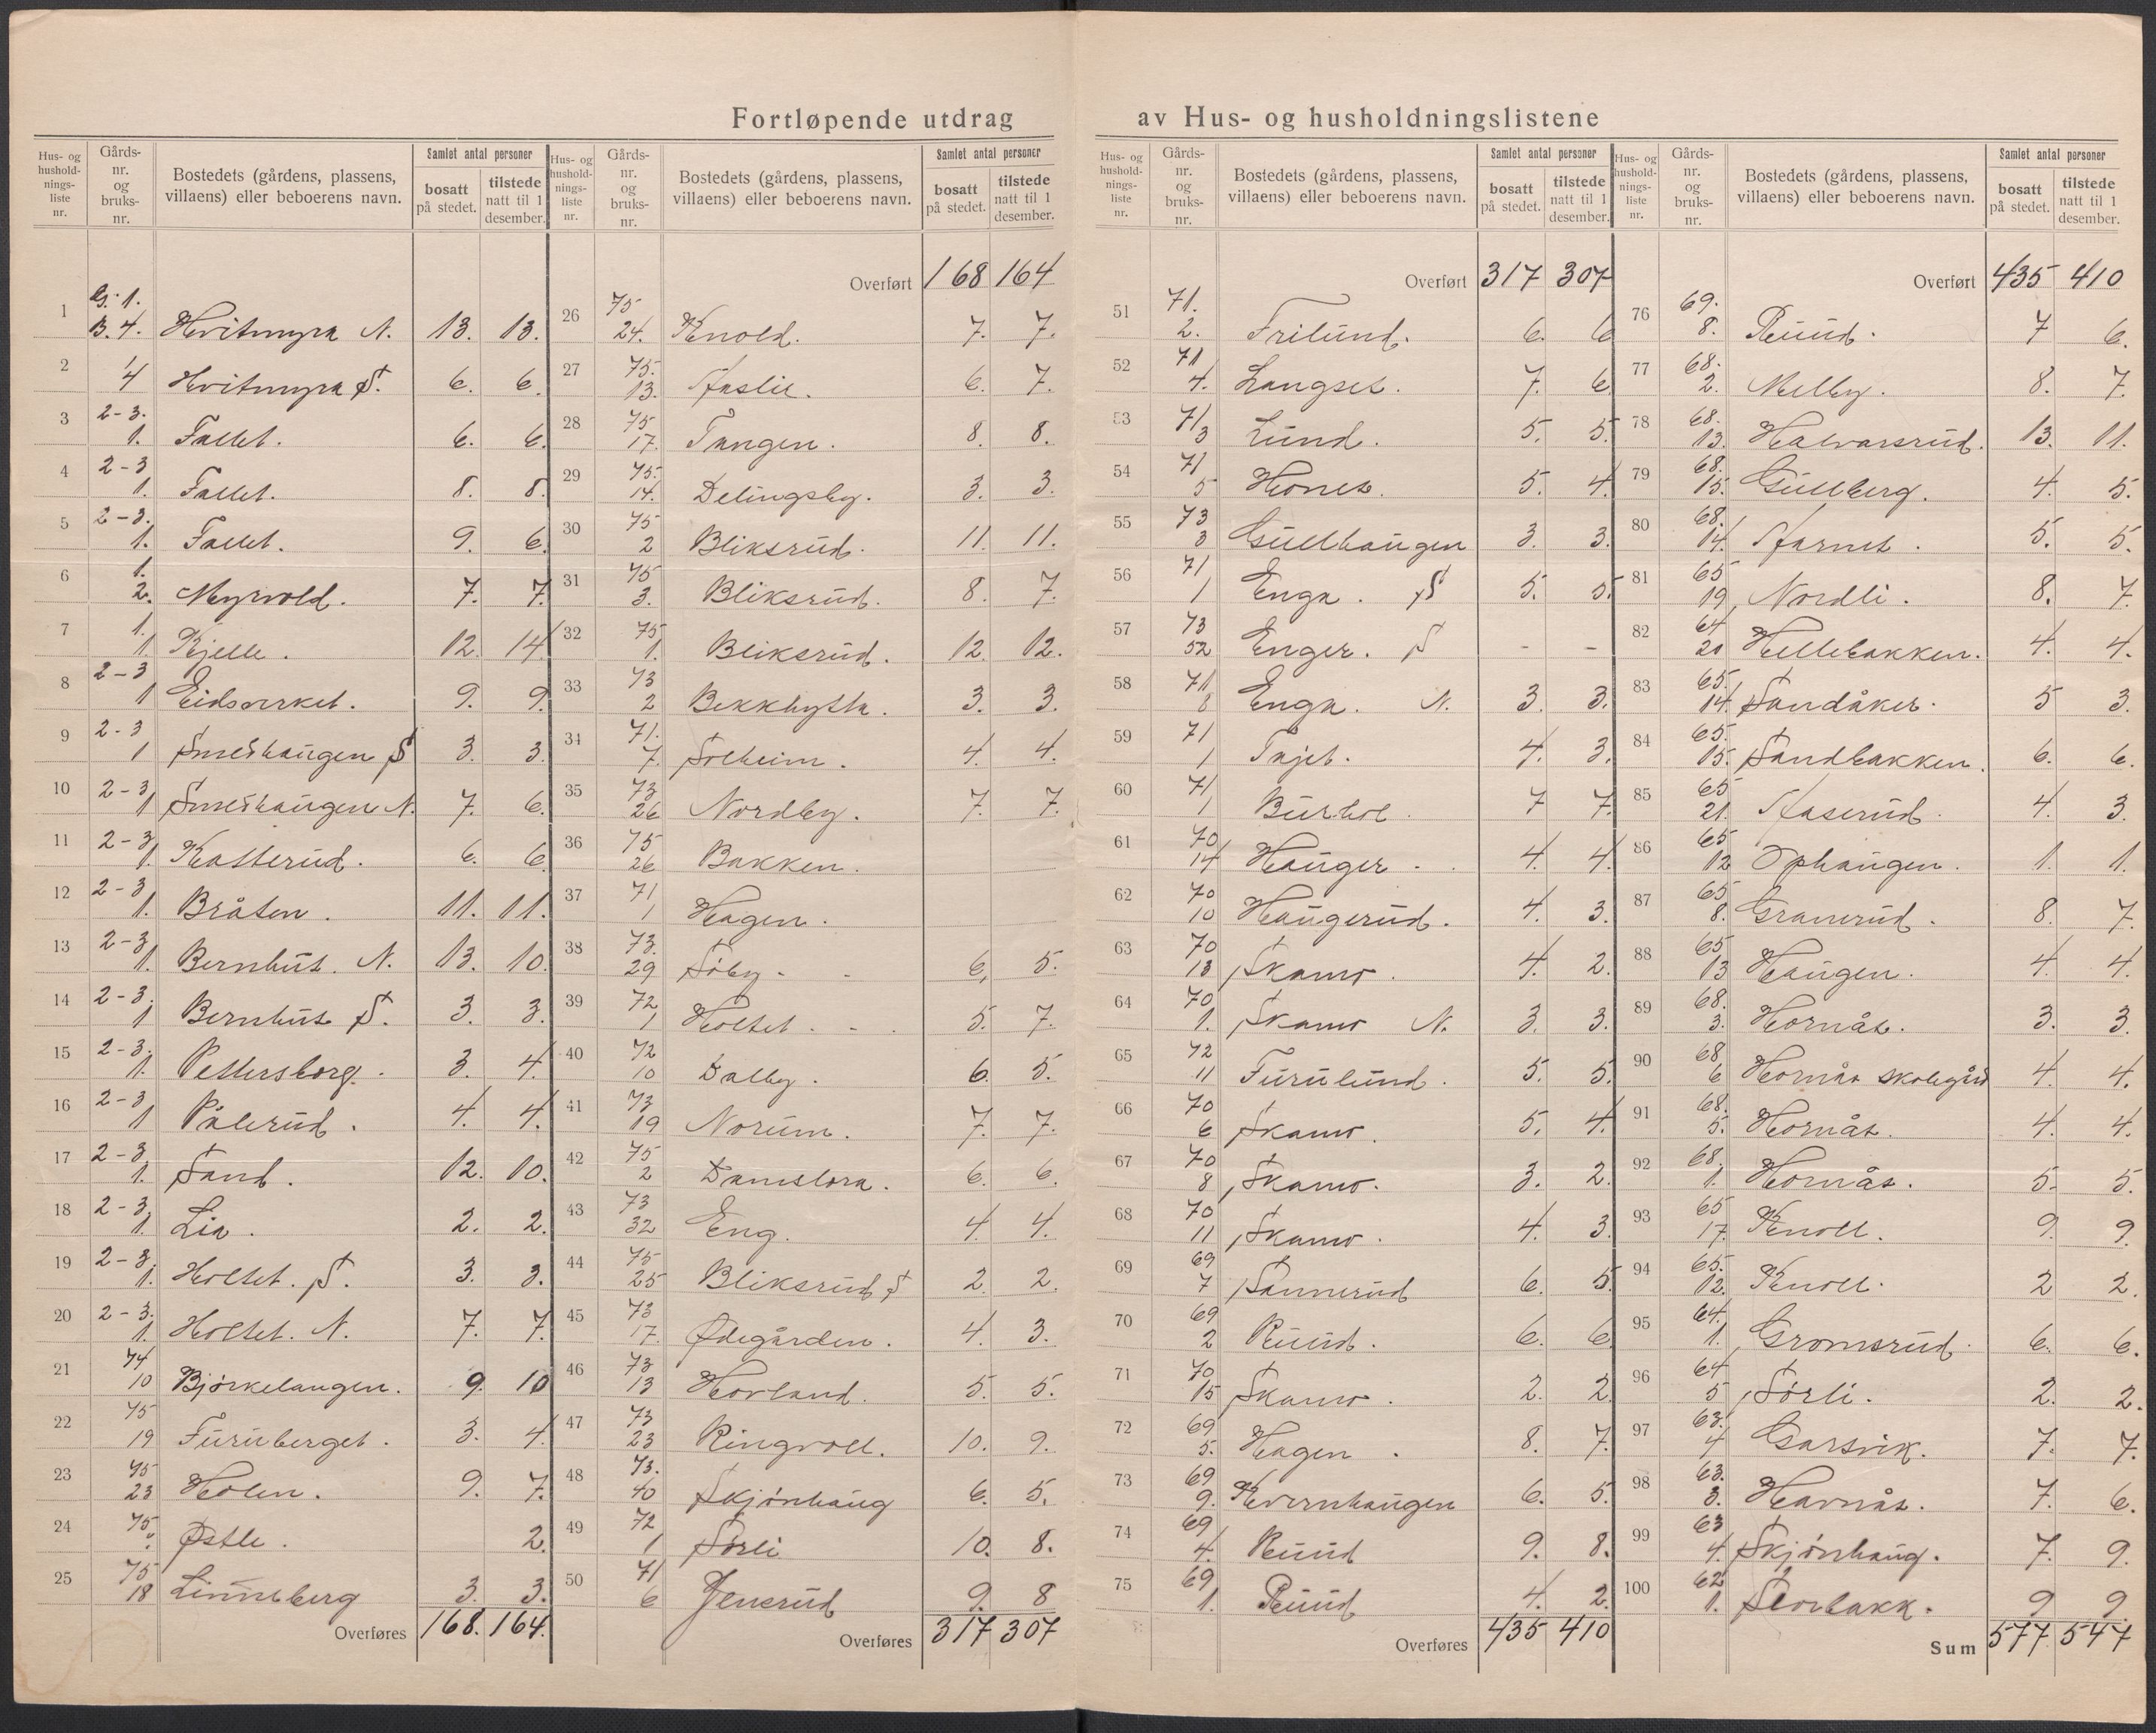 Fortløpende utdrag av Hus- og husholdningslistene
Hus- og husholdnings- liste nr. Gårds- nr. og bruks- nr. Bostedets (gårdens, plassens, villaens) eller beboerens navn. Samlet antal personer bosatt på stedet. tilstede natt til 1 desember.
1 G. 1. B. 4. Hvitmyra N. 13. 13.
2 4 Hvitmyra S. 6. 6.
3 2-3. 1. Fallet. 6. 6.
4 2-3 1. Fallet. 8. 8.
5 2-3. 1. Fallet. 9. 6.
6 1. 2. Myrvold. 7. 7.
7 1. 1. Kjelle. 12. 14
8 2-3 1 Eidsverket. 9. 9.
9 2-3 1 Smedhaugen S 3. 3.
10 2-3 1 Smedhaugen N. 7. 6.
11 2-3 1. Katterud. 6. 6
12 2-3 1. Bråten. 11. 11.
13 2-3 1. Bernhus. N. 13. 10.
14 2-3. 1 Bernhus S. 3. 3.
15 2-3. 1. Pettersborg. 3. 4.
16 2-3 1 Pålerud. 4. 4.
17 2-3. 1. Sand. 12. 10.
18 2-3. 1. Lia. 2. 2.
19 2-3. 1. Holtet. S. 3. 3.
20 2-3. 1. Holtet. N. 7. 7.
21 74 10 Bjørkelangen. 9. 10
22 75 19 Furuberget. 3. 4.
23 75 23 Holen. 9. 7.
24 75. Østle. 2.
25 75 18 Linneberg 3. 3.
Overføres 168. 164.
Overført 168 164
26 75 24. Knold. 7. 7.
27 75. 13. Haslie. 6. 7.
28 75 17. Tangen. 8. 8.
29 75. 14. Delingsby. 3. 3.
30 75 2 Bliksrud. 11. 11.
31 75 3. Bliksrud. 8. 7.
32 75 1. Bliksrud. 12. 12.
33 73 2 Bekkhytta. 3. 3.
34 71. 7. Solheim. 4. 4.
35 73 26 Nordby. 7. 7.
36 75 26 Bakken.
37 71 1 Hagen.
38 73. 29 Søby. 6. 5.
39 72 1 Holtet. 5. 7.
40 72 10 Dalby. 6. 5.
41 73 19 Norum. 7. 7.
42 75 2 Damstora. 6. 6.
43 73 32 Eng. 4. 4.
44 75 25 Bliksrud S 2. 2.
45 73 17. Ødegården. 4. 3.
46 73 13 Hovland. 5. 5.
47 73 23 Ringvoll. 10. 9.
48 73. 40 Skjønhaug 6. 5.
49 72 1 Sørli 10. 8.
50 71 6 Jenerud 9. 8
Overføres 317 307
Overført 317 307
51 71. 2. Frilund. 6. 6
52 71 4. Langset. 7. 6
53 71 3 Lund. 5. 5.
54 71 5 Hones. 5. 4.
55 73 3 Gullhaugen 3. 3.
56 71 1 Enga. S 5. 5.
57 73 52 Enger. S - -
58 71 8 Enga. N. 3. 3.
59 71 1 Tajet. 4. 3.
60 71 1 Burhol. 7 7.
61 70 14 Hauger 4. 4.
62 70 10 Haugerud. 4. 3.
63 70 13 Skamo. 4. 2.
64 70 1. Skamo N. 3. 3.
65 72 11 Furulund. 5. 5.
66 70 6 Skamo. 5. 4.
67 70 8 Skamo. 3. 2.
68 70 11 Skamo. 4. 3.
69 69 7 Sannerud 6. 5
70 69 2 Ruud. 6. 6
71 70 15 Skamo. 2. 2
72 69 5. Hagen. 8. 7.
73 69 9. Kvernhaugen 6. 5.
74 69 4. Ruud 9. 8.
75 69 1. Ruud 4. 2.
Overføres 435 410
Overført 435 410
76 69. 8. Ruud. 7 6.
77 68. 2. Melby. 8. 7.
78 68. 13. Halvarsrud. 13. 11.
79 68. 15. Gullberg. 4. 5.
80 68. 14. Harnes. 5. 5.
81 65 19 Nordli. 8. 7
82 64 20 Hellebakken. 4. 4.
83 65. 14. Sandåker. 5 3.
84 65. 15. Sandbakken. 6. 6.
85 65 21. Haserud. 4. 3.
86 65 12 Ophaugen. 1. 1.
87 65 8. Granerud. 8. 7.
88 65 13 Haugen. 4. 4.
89 68. 3. Hornås. 3. 3.
90 68 6 Hornås skolegård 4. 4.
91 68. 5. Hornås. 4. 4.
92 68. 1. Hornås. 5. 5.
93 65 17 Knoll. 9. 9.
94 65. 12. Knoll. 2 2.
95 64. 1. Gromsrud. 6. 6.
96 64 5 Sørli. 2. 2.
97 63. 4 Garsvik. 7. 7.
98 63. 3. Havnås. 7. 6.
99 63 4. Skjønhaug. 7. 9.
100 62 1. Storbakk. 9 9.
Sum 577 547